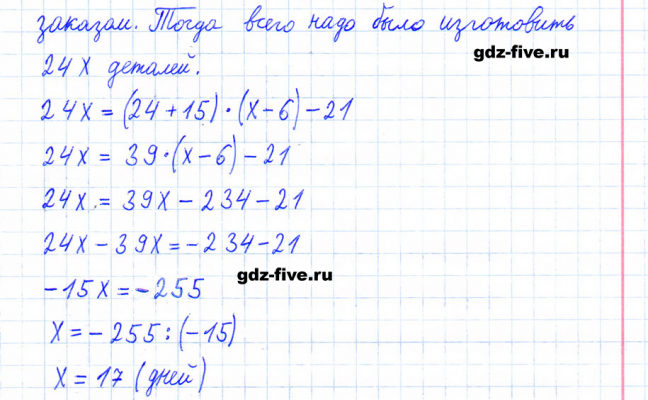 заказам. Тогда всего надо было изготовить
gdz-five.ru
24x деталей.
24x = (24 + 15) · (x – 6) – 21
24x = 39 · (x – 6) – 21
24x = 39x – 234 – 21
24x – 39x = – 234 – 21
gdz-five.ru
–15x = – 255
x = – 255 : (–15)
x = 17 (дней)